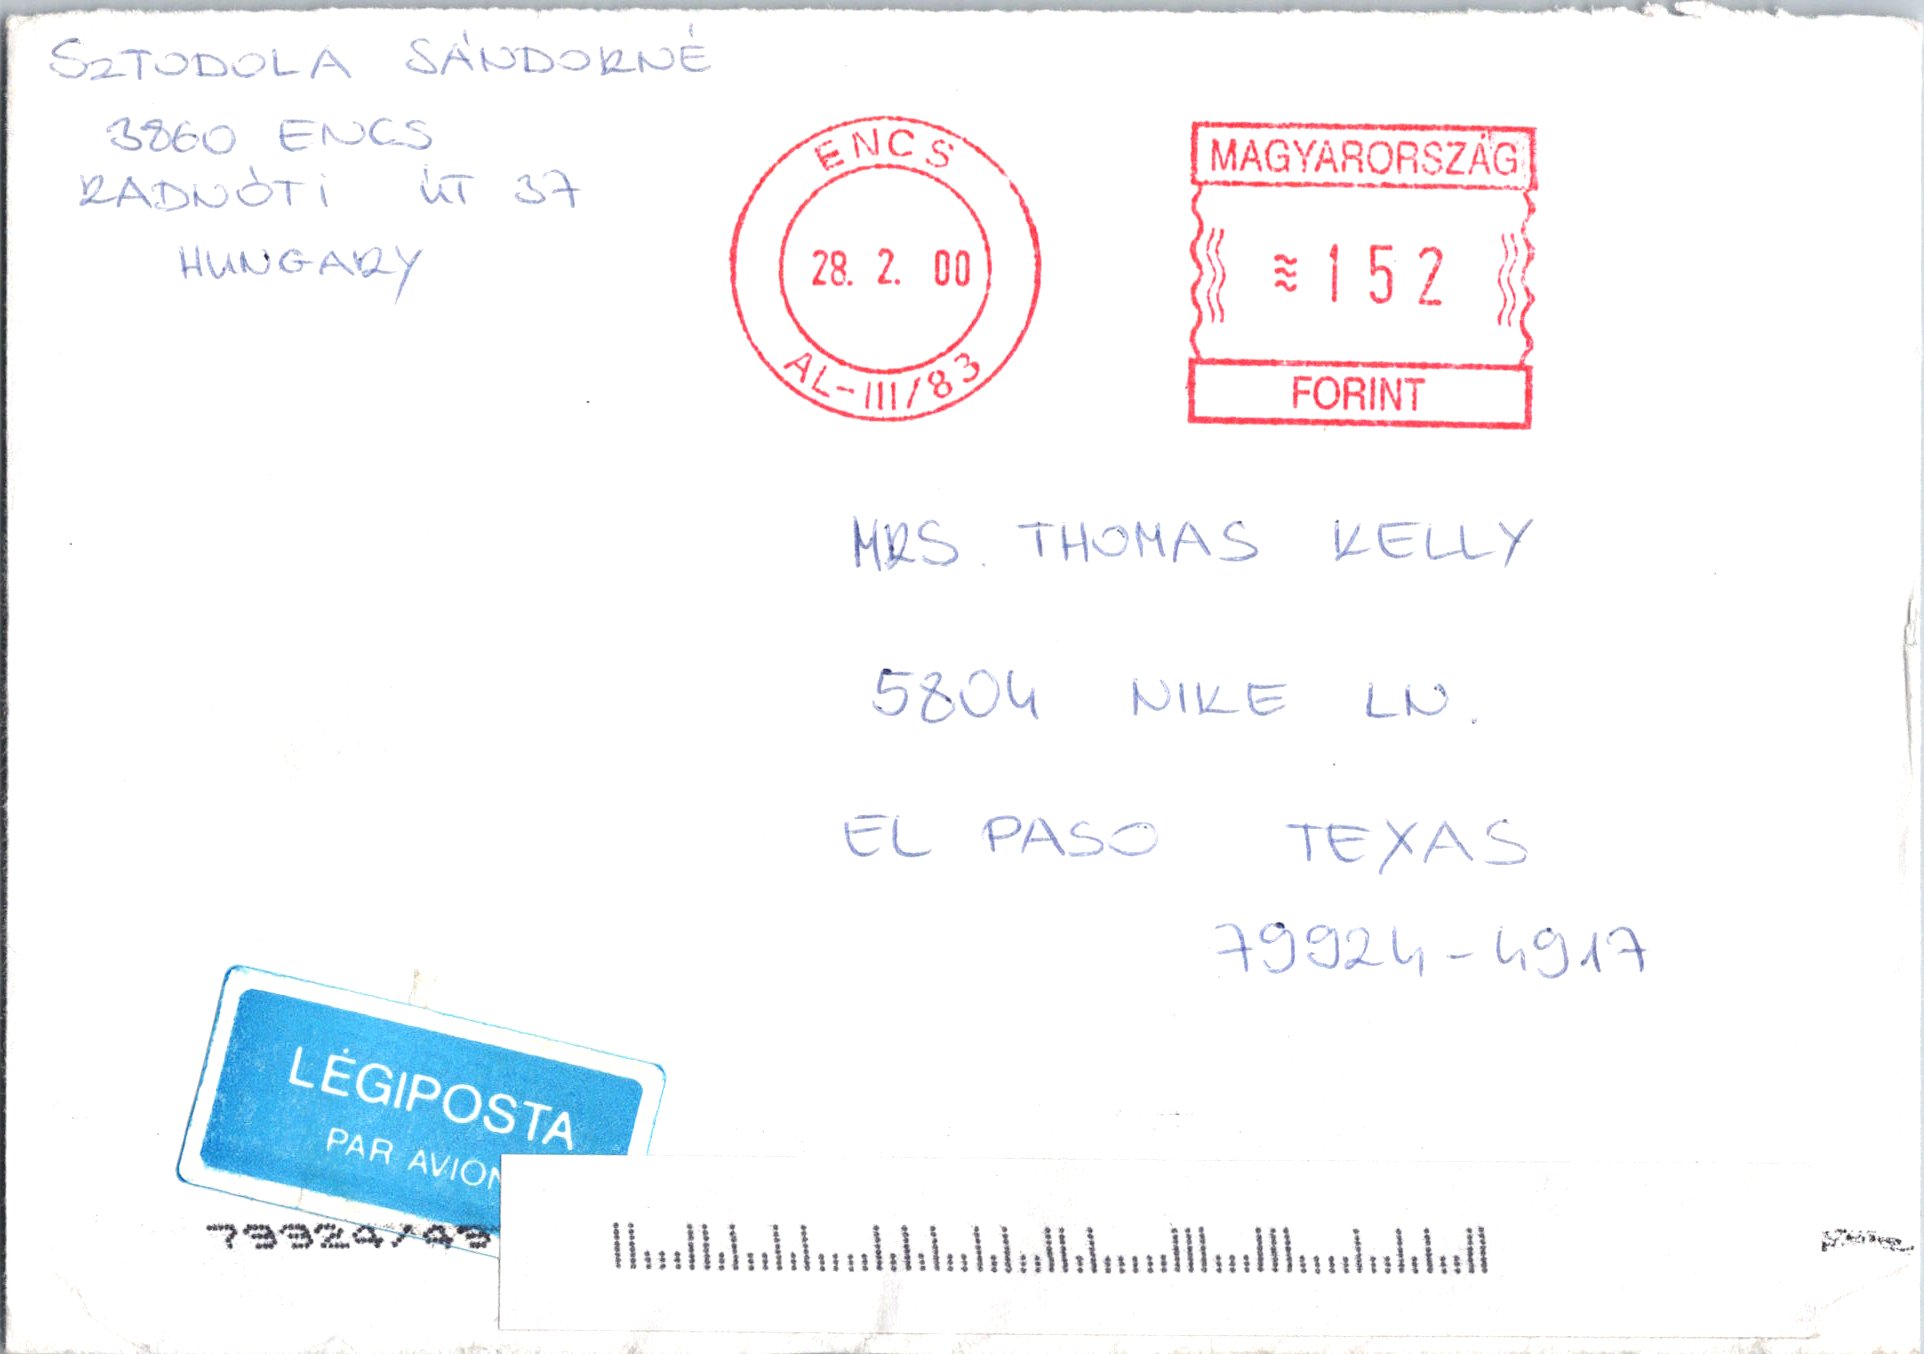 SZTODOLA SÁNDORNÉ
3860 ENCS
RADNÓTI ÚT 37
HUNGARY
ENCS
28. 2. 00
AL-III/83
MAGYARORSZÁG
≋152
FORINT
MRS. THOMAS KELLY
5804 NIKE LN.
EL PASO TEXAS
79924-4917
LÉGIPOSTA
PAR AVION
79924/49